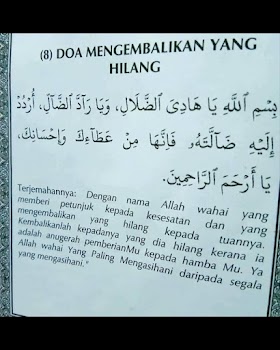 (8) DOA MENGEMBALIKAN YANG
HILANG
بِسْمِ اللَّهِ يَا هَادِيَ الضَّلَالِ، وَيَا رَآدَّ الضَّآلِّ، اُرْدُدْ
إِلَيْهِ ضَآلَّتَهُ، فَإِنَّهَا مِنْ عَطَآءِكَ وَإِحْسَانِكَ،
يَا أَرْحَمَ الرَّاحِمِينَ.
Terjemahannya: Dengan nama Allah wahai yang
memberi petunjuk kepada kesesatan dan yang
mengembalikan yang hilang kepada tuannya.
Kembalikanlah kepadanya yang dia hilang kerana ia
adalah anugerah pemberianMu kepada hamba Mu. Ya
Allah wahai Yang Paling Mengasihani daripada segala
yang mengasihani."